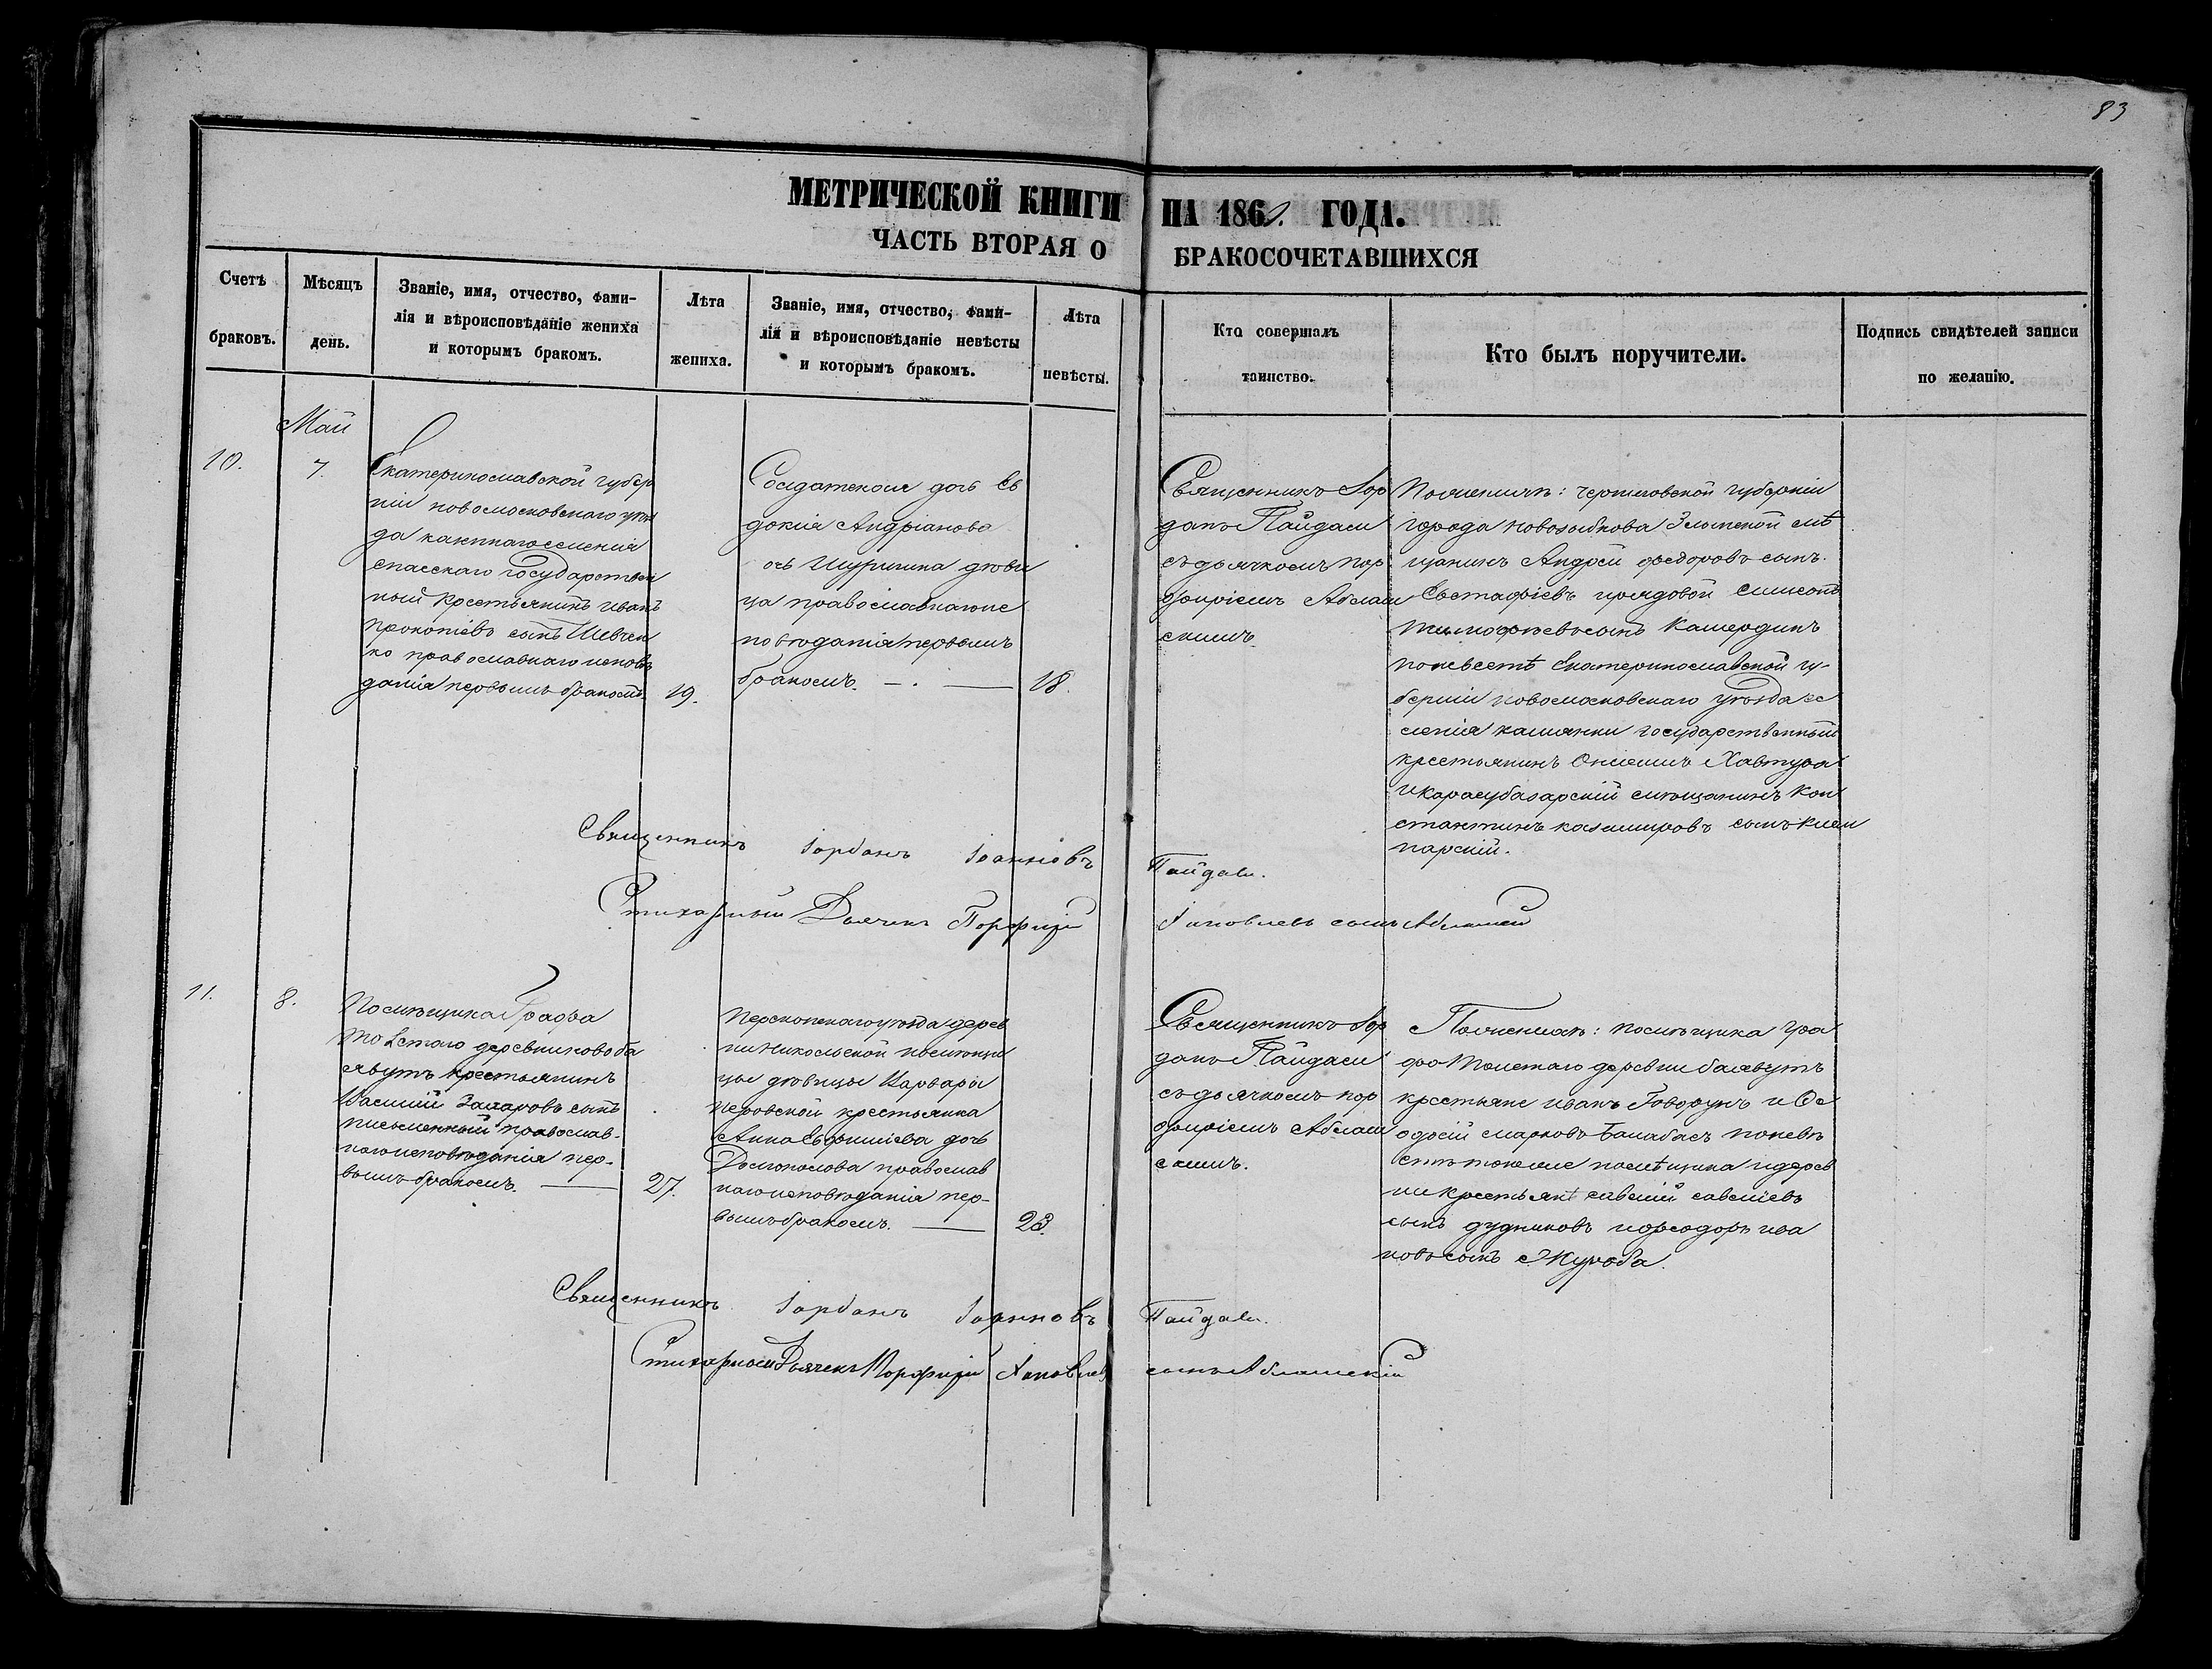 83
МЕТРИЧЕСКОЙ КНИГИ НА 186 ГОДА.
ЧАСТЬ ВТОРАЯ О БРАКОСОЧЕТАВШИХСЯ
Счетъ
браковъ.
Мѣсяцъ
день.
Званіе, имя, отчество, фами-
лія и вѣроисповѣданіе жениха
и которымъ бракомъ.
Лѣта
жениха.
Званіе, имя, отчество, фами-
лія и вѣроисповѣданіе невѣсты
и которымъ бракомъ.
Лѣта
невѣсты.
Кто совершалъ
таинство.
Кто былъ поручители.
Подпись свидѣтелей записи
по желанію.
Май
10.
7.
Екатеринославской губер
ніи новомосковскаго уѣз
да
спасскаго государствен
ный крестьянинъ иванъ
прокопіевъ сынъ Шевчен
ко православнаго исповѣ
данія первымъ бракомъ
19.
дочь Ев
докія Андріанова
дѣви
ца православнаго ис
повѣданія первымъ
бракомъ. —
18.
Священникъ Іор
данъ Пайдаси
съ дьячкомъ пор
фиріемъ Аблам
скимъ
По женихѣ: черниговской губерніи
города новозыбкова мѣ
щанинъ Андрей федоровъ сынъ
Евстафіевъ рядовой
сынъ
по невестѣ Екатеринославской гу-
берніи новомосковскаго уѣзда се
ленія камянки государственный
крестьянинъ Хавтура
и карасубазарскій мѣщанинъ Кон
стантинъ казимировъ сынъ
парскій.
Священникъ Іорданъ Іоанновъ Пайдаси.
Стихарный Дьячекъ Порфирій Іаковлевъ сынъ
11.
8.
Помѣщика Графа
Толстаго деревни
крестьянинъ
Василий Захаровъ сынъ
православ-
наго исповѣданія пер-
вымъ бракомъ. —
27.
Перекопскаго уѣзда дерев
ни Никольской помѣщи
цы дѣвицы Варвары
Перовской крестьянка
Анна Евфиміева дочь
Долгополова православ
наго исповѣданія пер-
вымъ бракомъ. —
23.
Священникъ Іор
данъ Пайдаси
съ дьячкомъ пор
фиріемъ Аблам
скимъ.
По женихѣ: помѣщика гра
фа Толстаго деревни
крестьяне иванъ Говорунъ и Ѳе
одосій марковъ по невѣ
стѣ тоже помѣщика и дерев
ни крестьяне савеліевъ
сынъ дудниковъ и феодоръ ива
новъ сынъ
Священникъ Іорданъ Іоанновъ Пайдаси.
Стихарный Дьячекъ Порфирій Іаковлевъ сынъ Абламскій